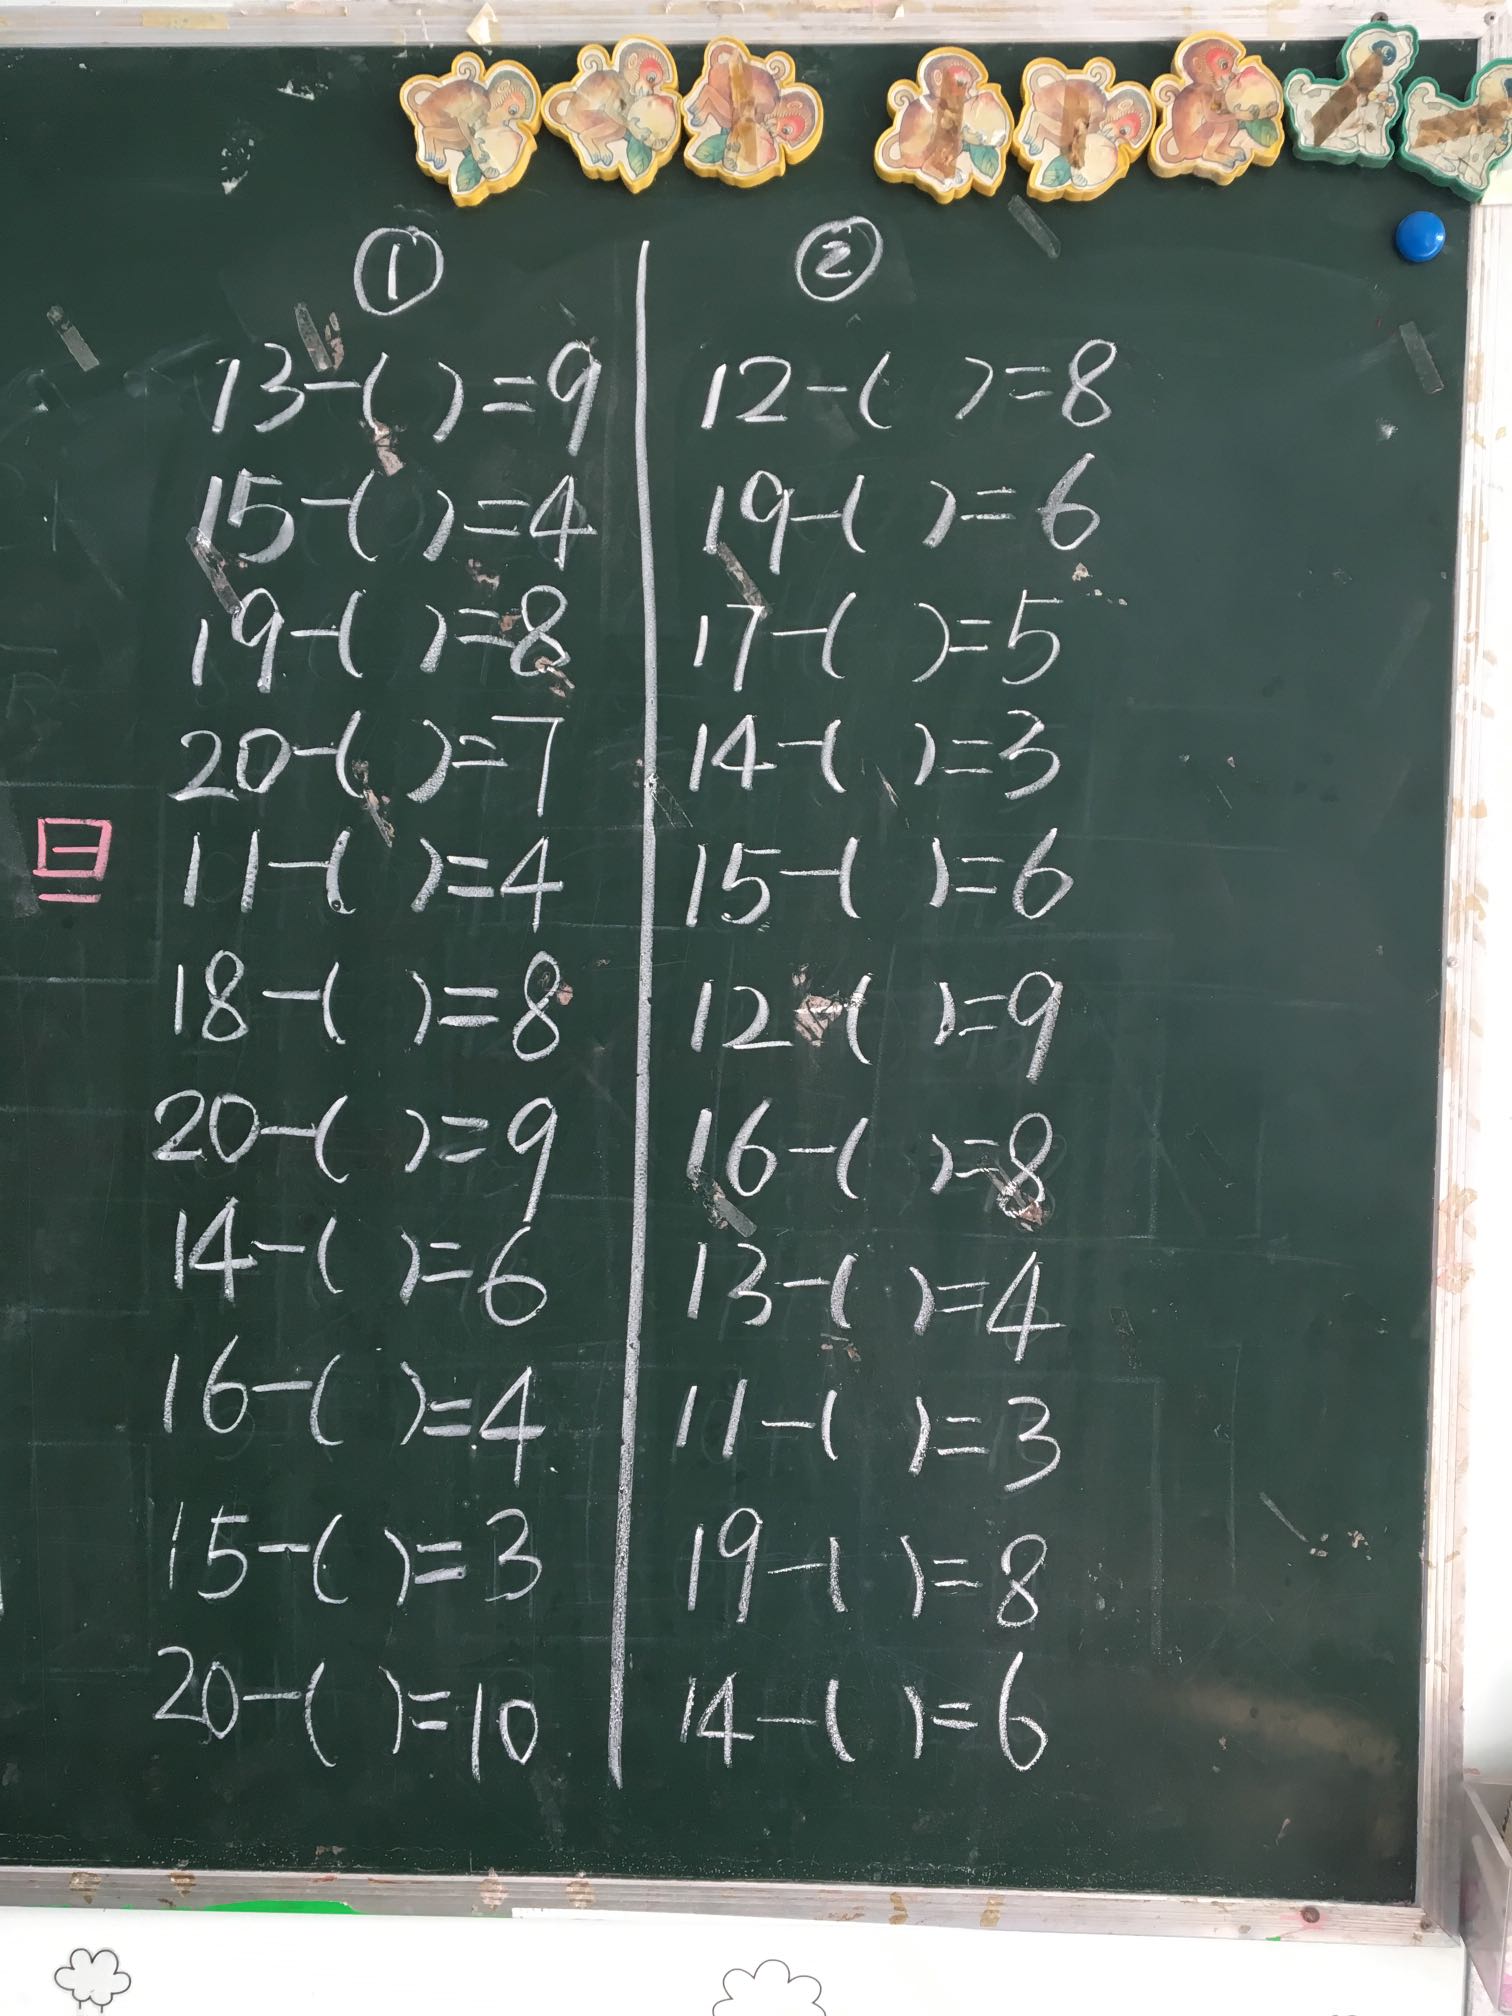 ①
13-( )=9
15-( )=4
19-( )=8
20-( )=7
11-( )=4
18-( )=8
20-( )=9
14-( )=6
16-( )=4
15-( )=3
20-( )=10
②
12-( )=8
19-( )=6
17-( )=5
14-( )=3
15-( )=6
12-( )=9
16-( )=8
13-( )=4
11-( )=3
19-( )=8
14-( )=6